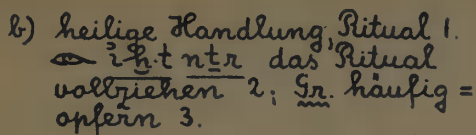 b) heilige Handlung, Ritual 1.
𓁹 i҆ḫ.t nṯr das Ritual
vollziehen 2; Gr. häufig =
opfern 3.